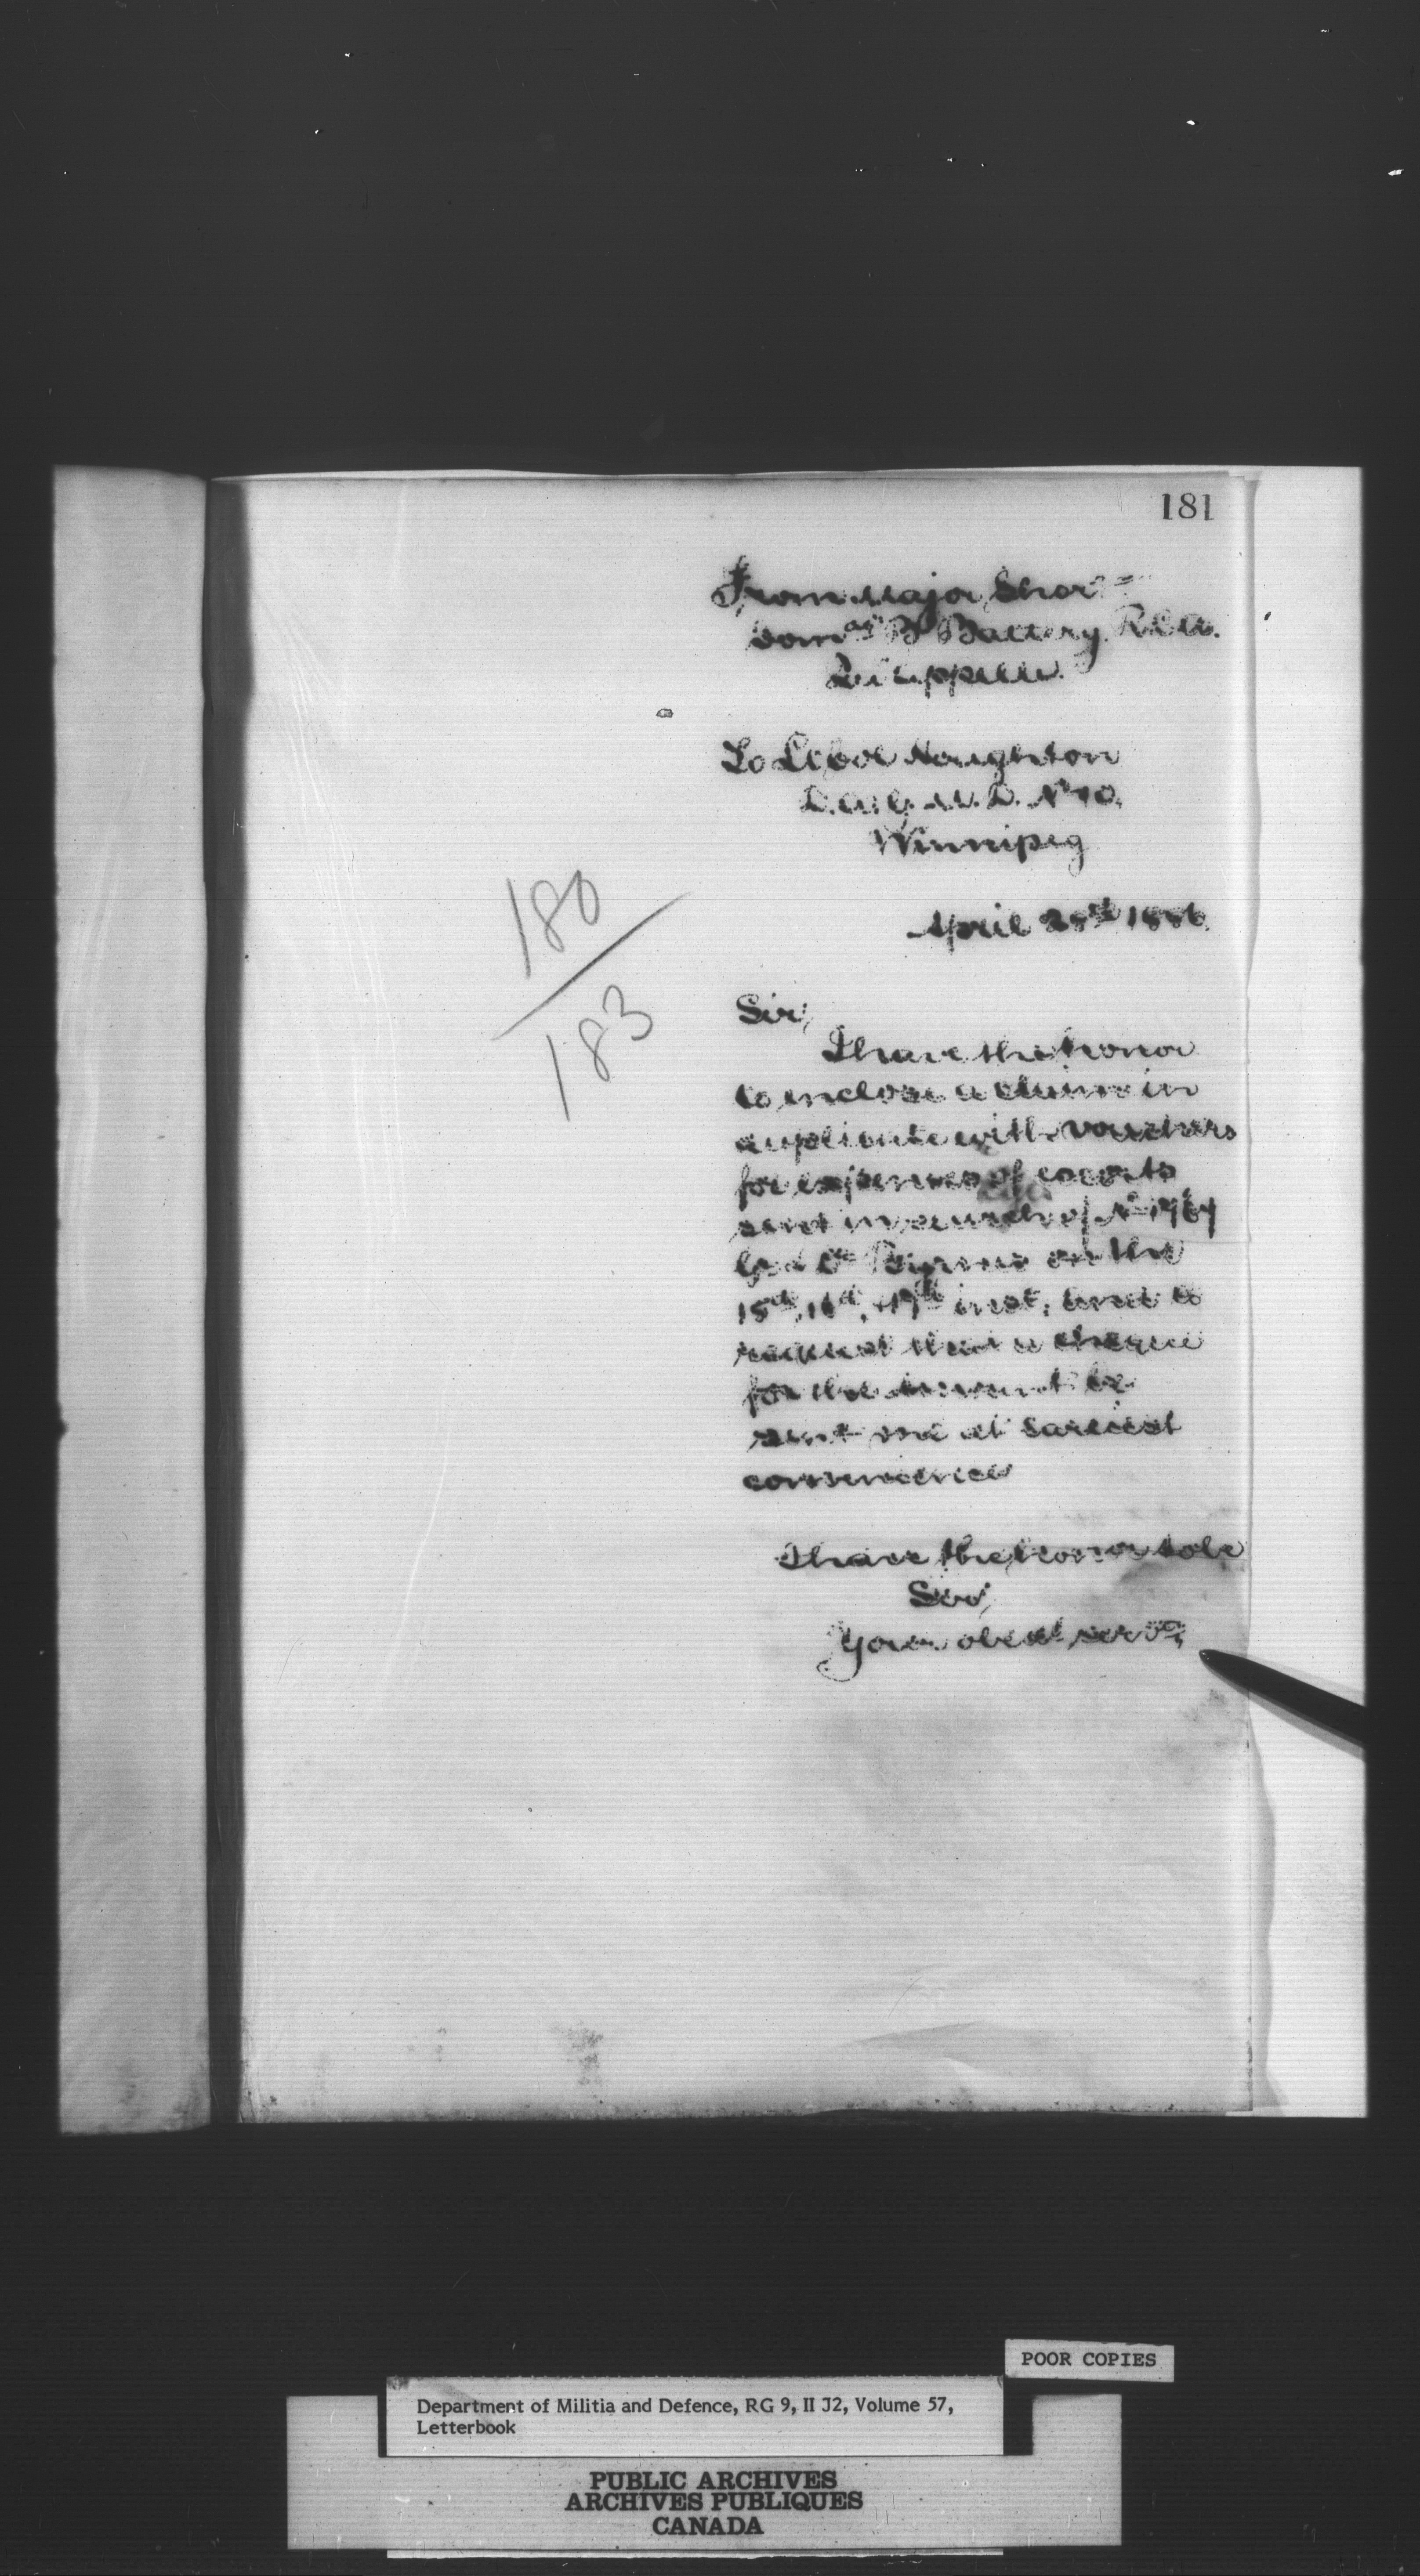 181
From Major Short
Comdg "B" Battery R.C.A.
Qu'Appelle.
To Lt Col Houghton
D.A.G. M.D. No 10.
Winnipeg
April 28th 1886.
180
183
Sir,
I have the honor
to enclose a claim in
duplicate with vouchers
for expenses of escorts
sent in search of No
Byrne on the
15th, 16th, +17th inst, and to
request that a cheque
for the amount be
sent me at earliest
convenience
I have the honor to be
Sir,
Your obedt servt,
POOR COPIES
Department of Militia and Defence, RG 9, II J2, Volume 57,
Letterbook
PUBLIC ARCHIVES
ARCHIVES PUBLIQUES
CANADA